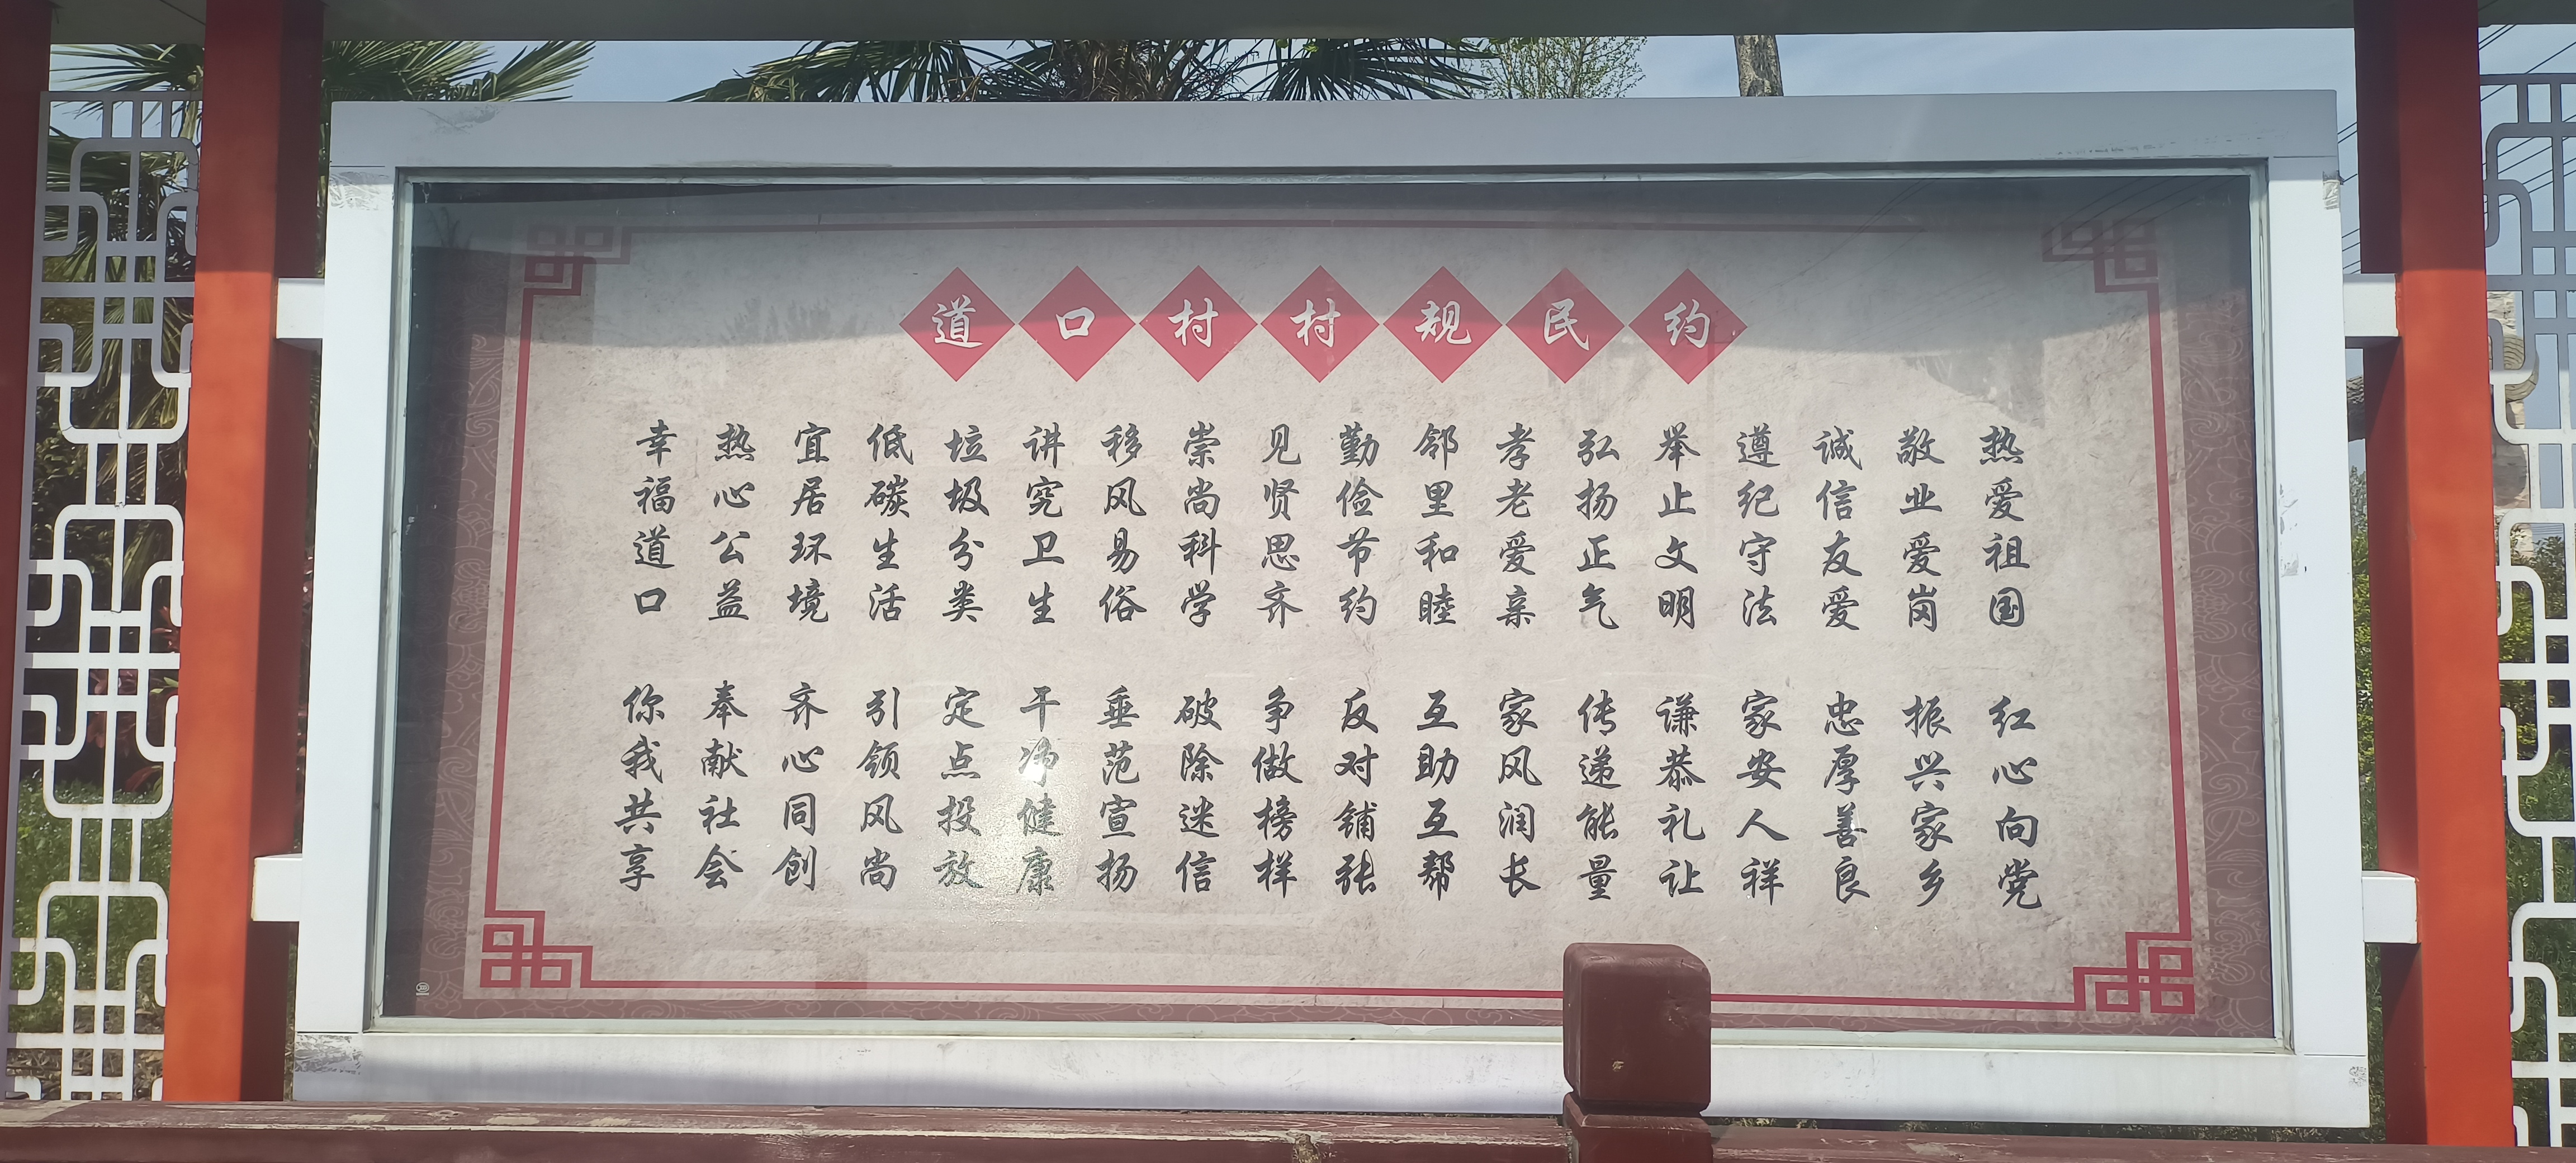 道口村村规民约
热爱祖国 红心向党
敬业爱岗 振兴家乡
诚信友爱 忠厚善良
遵纪守法 家安人祥
举止文明 谦恭礼让
弘扬正气 传递能量
孝老爱亲 家风润长
邻里和睦 互助互帮
勤俭节约 反对铺张
见贤思齐 争做榜样
崇尚科学 破除迷信
移风易俗 垂范宣扬
讲究卫生 干净健康
垃圾分类 定点投放
低碳生活 引领风尚
宜居环境 齐心同创
热心公益 奉献社会
幸福道口 你我共享